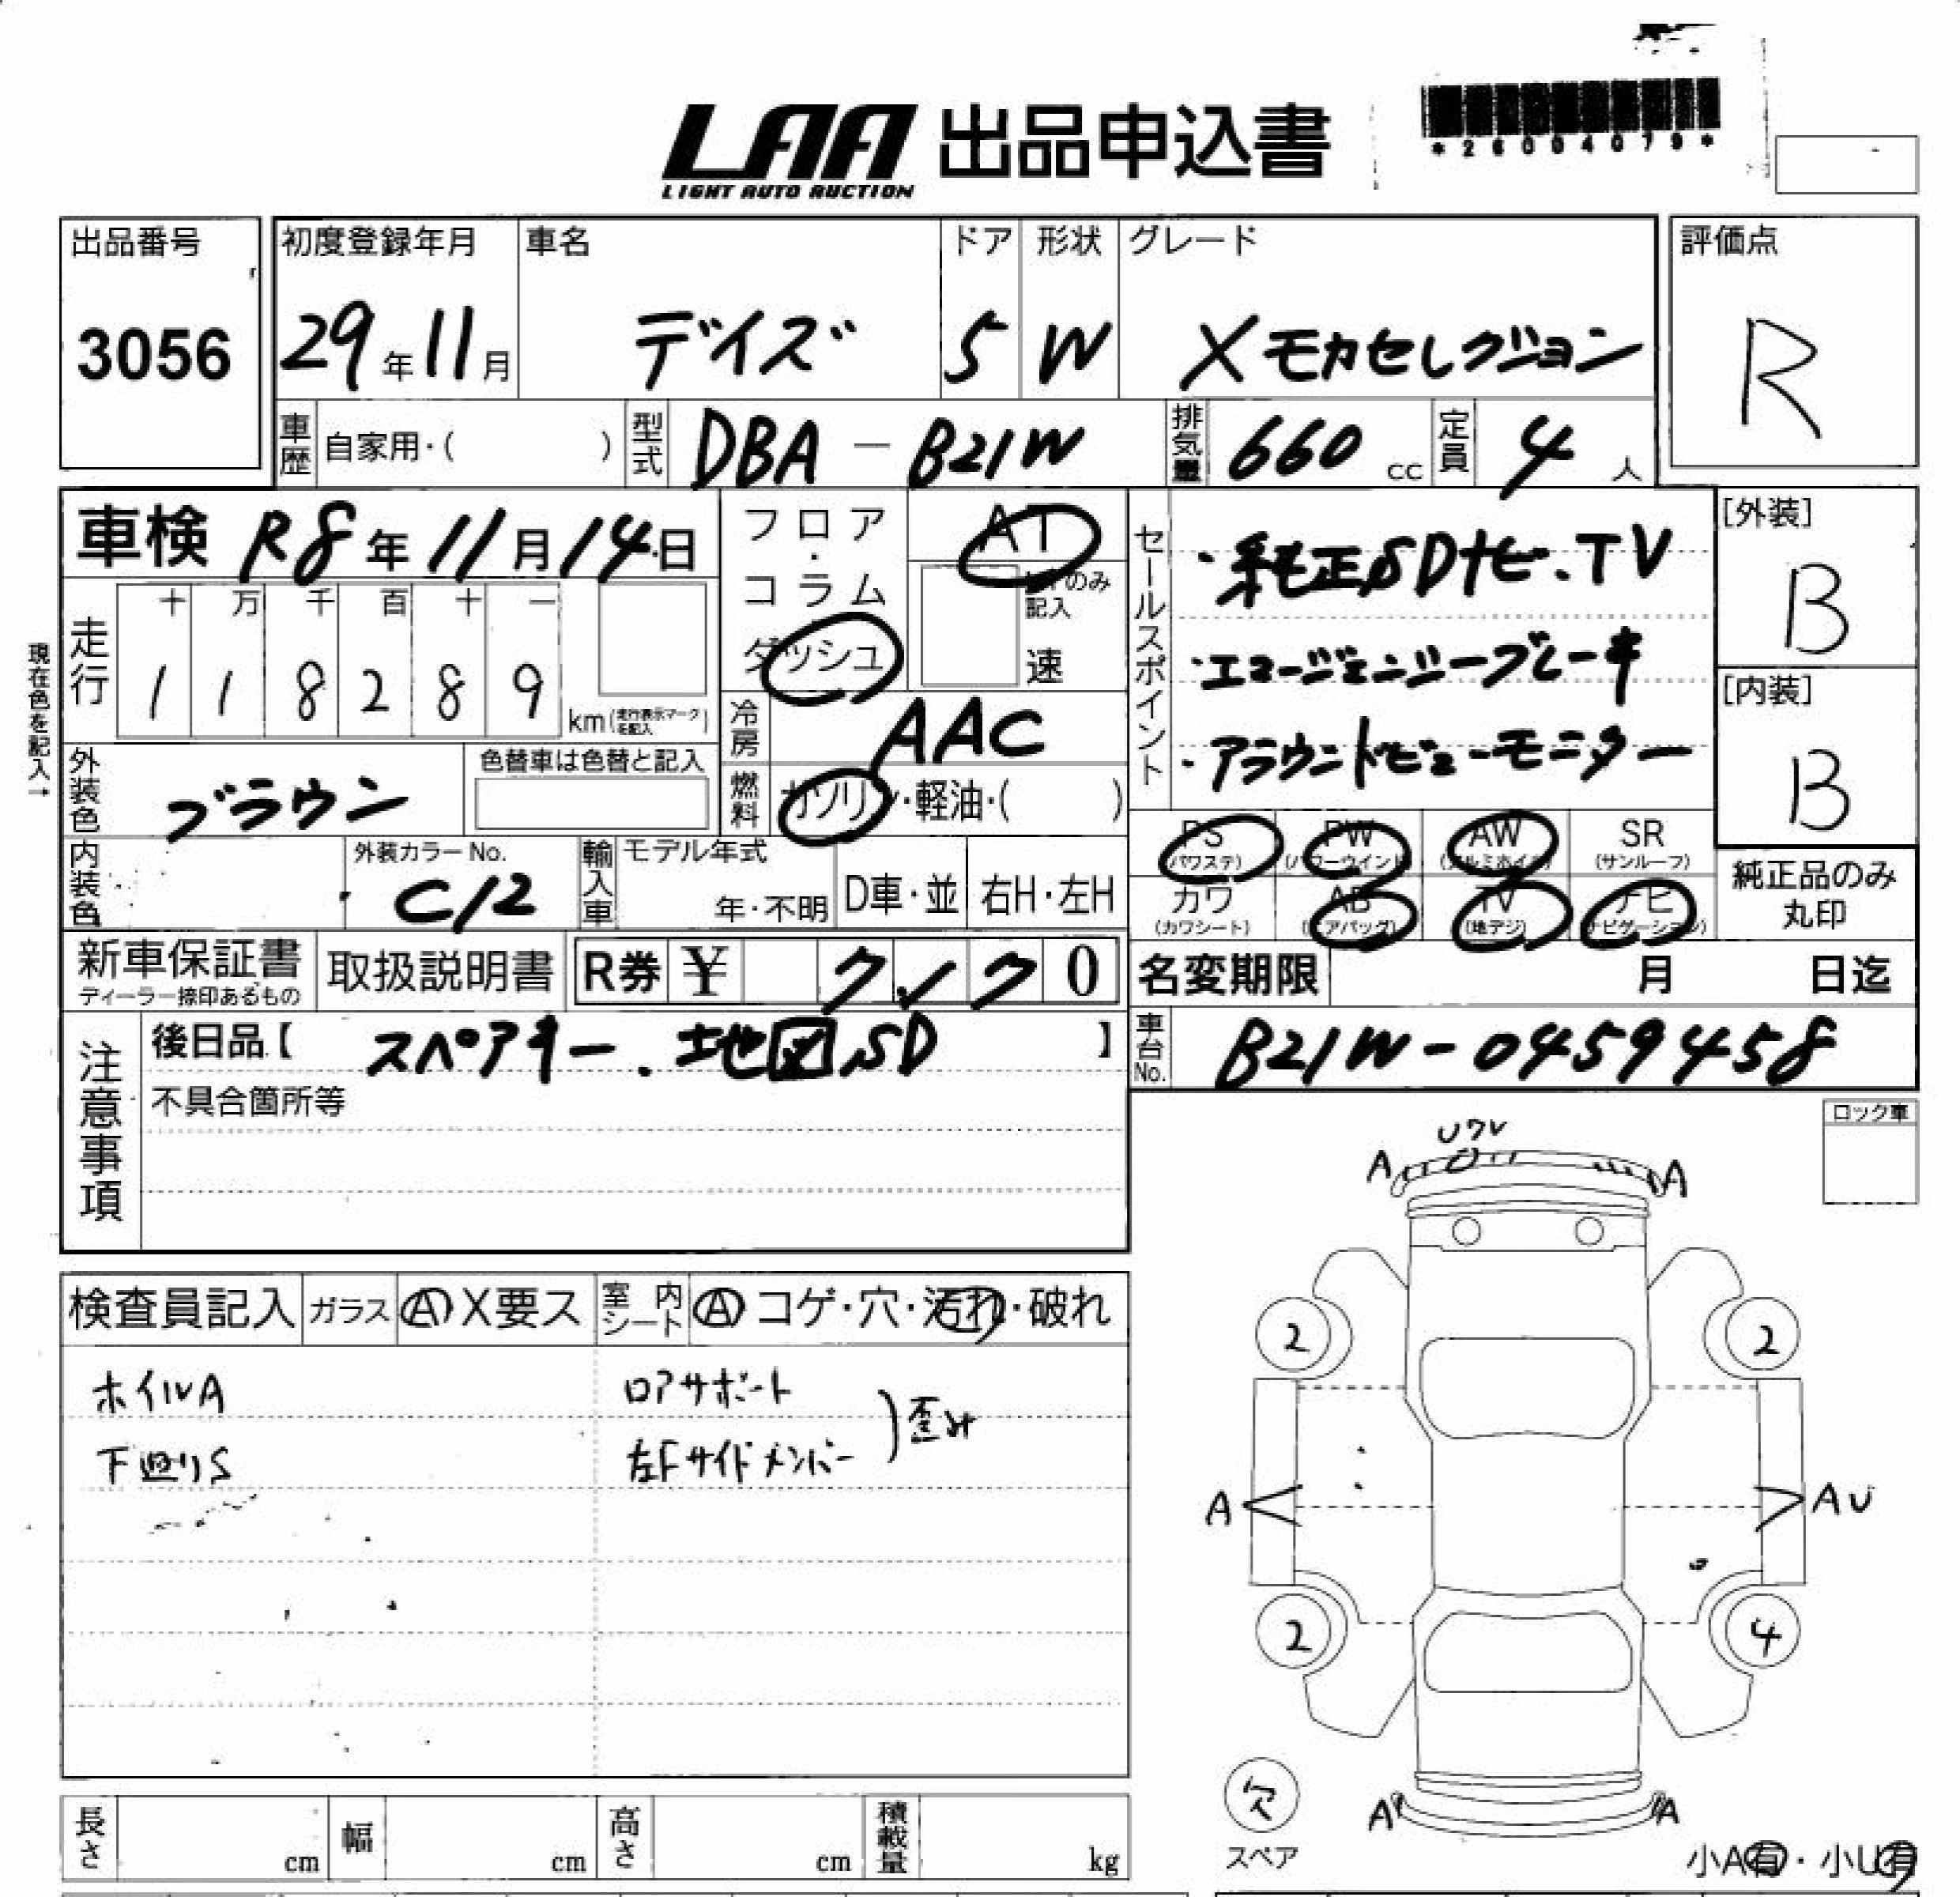 *26004079*
LAA 出品申込書
LIGHT AUTO AUCTION
出品番号 初度登録年月 車名 ドア 形状 グレード 評価点
3056 29年11月 デイズ 5 W Xモカセレクション R
車歴 自家用・( ) 型式 DBA-B21W 排気量 660 cc 定員 4 人
車検 R8年11月14日 フロア・コラム ダッシュ AT
記入
速
セールスポイント
・純正SDナビ、TV
・エマージェンジーブレーキ
・アラウンドビューモニター
[外装]
B
[内装]
B
現在色を記入→
走行 十 万 千 百 十 一
1 1 8 2 8 9 km(走行表示マークを記入)
冷房 AAC
外装色 ブラウン 色替車は色替と記入 燃料 ガソリン・軽油・( )
内装色 外装カラーNo. C12 輸入車 モデル年式 年・不明 D車・並 右H・左H
PS (パワステ) PW (パワーウインド) AW (アルミホイル) SR (サンルーフ)
カワ (カワシート) AB (エアバッグ) TV (地デジ) ナビ (ナビゲーション)
純正品のみ
丸印
新車保証書 ディーラー捺印あるもの 取扱説明書 R券 ¥ クイク0 名変期限 月 日迄
注意事項 後日品【 スペアキー、地図SD 】
車台No. B21W-0459458
不具合箇所等
ロック車
検査員記入 ガラス A X要ス 室内シート A コゲ・穴・汚れ・破れ
ホイルA ロアサポート
下廻りS 左Fサイドメンバー )歪み
Uワレ
A A
2 2
A AU
2 4
欠
スペア
A A
小A有・小U有
長さ cm 幅 cm 高さ cm 積載量 kg